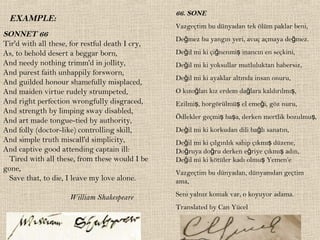 EXAMPLE:
SONNET 66
Tir'd with all these, for restful death I cry,
As, to behold desert a beggar born,
And needy nothing trimm'd in jollity,
And purest faith unhappily forsworn,
And guilded honour shamefully misplaced,
And maiden virtue rudely strumpeted,
And right perfection wrongfully disgraced,
And strength by limping sway disabled,
And art made tongue-tied by authority,
And folly (doctor-like) controlling skill,
And simple truth miscall'd simplicity,
And captive good attending captain ill:
Tired with all these, from these would I be
gone,
Save that, to die, I leave my love alone.
William Shakespeare
66. SONE
Vazgeçtim bu dünyadan tek ölüm paklar beni,
Değmez bu yangın yeri, avuç açmaya değmez.
Değil mi ki çiğnenmiş inancın en seçkini,
Değil mi ki yoksullar mutluluktan habersiz,
Değil mi ki ayaklar altında insan onuru,
O kızoğlan kız erdem dağlara kaldırılmış,
Ezilmiş, horgörülmüş el emeği, göz nuru,
Ödlekler geçmiş başa, derken mertlik bozulmuş,
Değil mi ki korkudan dili bağlı sanatın,
Değil mi ki çılgınlık sahip çıkmış düzene,
Doğruya doğru derken eğriye çıkmış adın,
Değil mi ki kötüler kadı olmuş Yemen'e
Vazgeçtim bu dünyadan, dünyamdan geçtim
ama,
Seni yalnız komak var, o koyuyor adama.
Translated by Can Yücel